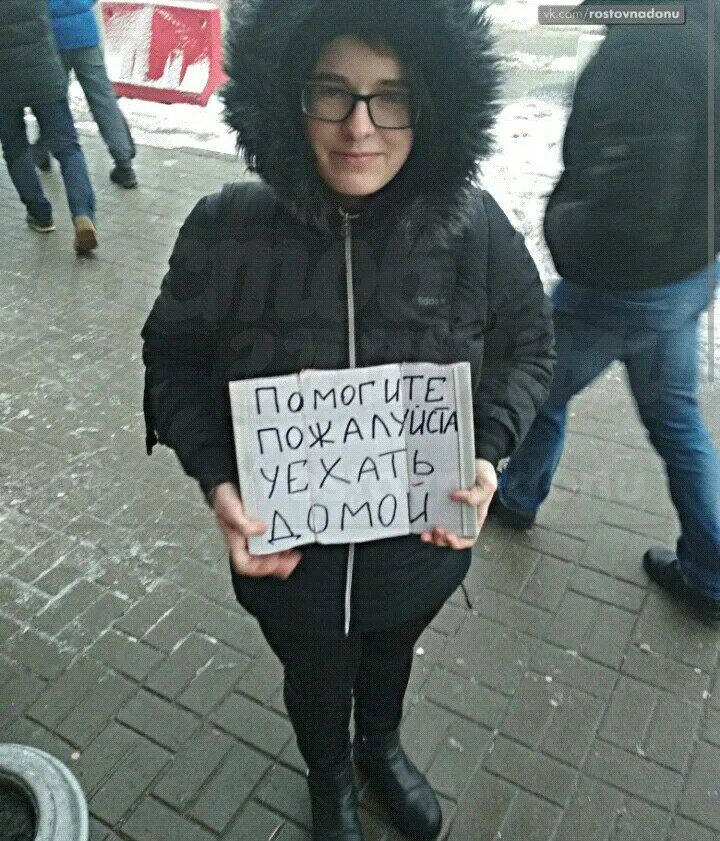 vk.com/rostovnadonu
adidas
ПОМОГИТЕ
ПОЖАЛУЙСТА
УЕХАТЬ
ДОМОЙ